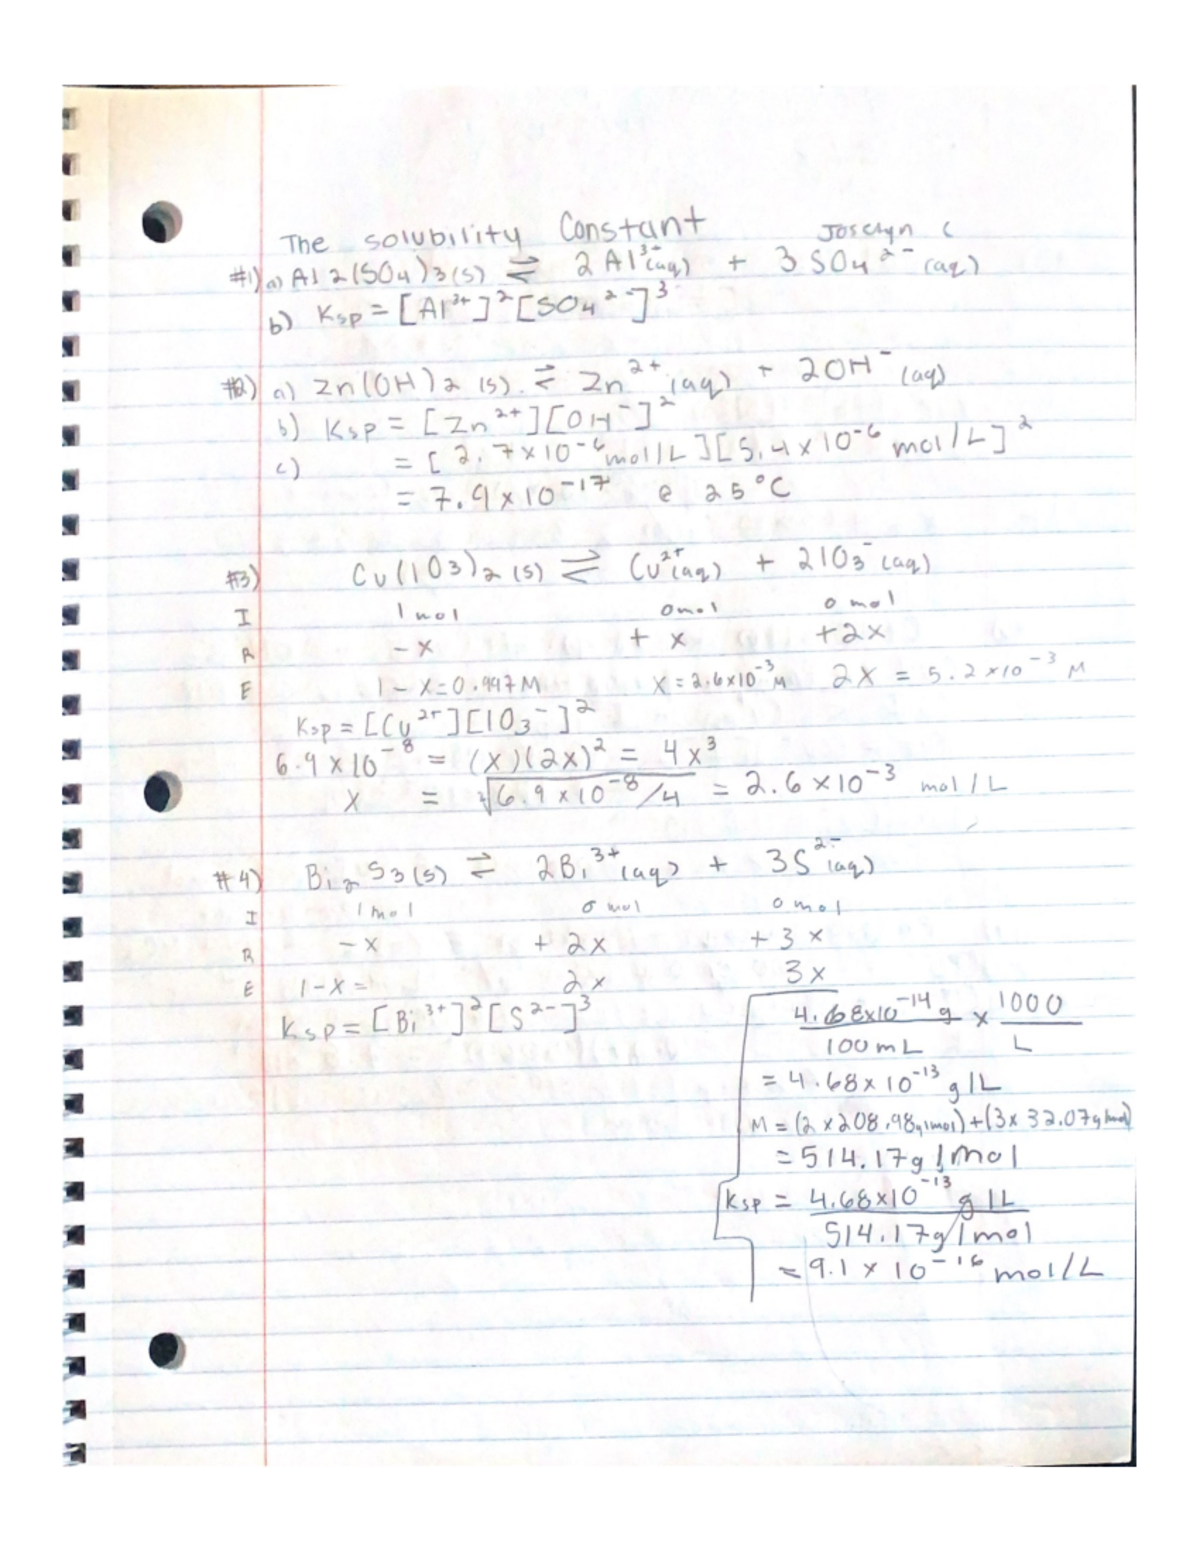 The solubility Constant Joselyn C
#1) a) Al2(SO4)3(s) ⇌ 2Al³⁺(aq) + 3SO4²⁻(aq)
b) Ksp = [Al³⁺]²[SO4²⁻]³
#2) a) Zn(OH)2 (s) ⇌ Zn²⁺(aq) + 2OH⁻(aq)
b) Ksp = [Zn²⁺][OH⁻]²
c) = [2.7x10⁻⁶mol/L][5.4x10⁻⁶ mol/L]²
= 7.9x10⁻¹⁷ @ 25°C
#3) Cu(IO3)2(s) ⇌ Cu²⁺(aq) + 2IO3⁻(aq)
I 1 mol 0mol 0 mol
R -x + x +2x
E 1-x=0.997M x=2.6x10⁻³M 2x = 5.2x10⁻³ M
Ksp = [Cu²⁺][IO3⁻]²
6.9x10⁻⁸ = (x)(2x)² = 4x³
x = ³√6.9x10⁻⁸/4 = 2.6x10⁻³ mol/L
#4) Bi2S3(s) ⇌ 2Bi³⁺(aq) + 3S²⁻(aq)
I 1mol 0 mol 0 mol
R -x + 2x + 3x
E 1-x= 2x 3x
Ksp = [Bi³⁺]²[S²⁻]³
4.68x10⁻¹⁴g/100mL x 1000/L
= 4.68x10⁻¹³ g/L
M = (2x208.98g/mol)+(3x32.07g/mol)
= 514.17g/mol
Ksp = 4.68x10⁻¹³ g/L / 514.17g/mol
= 9.1x10⁻¹⁶ mol/L